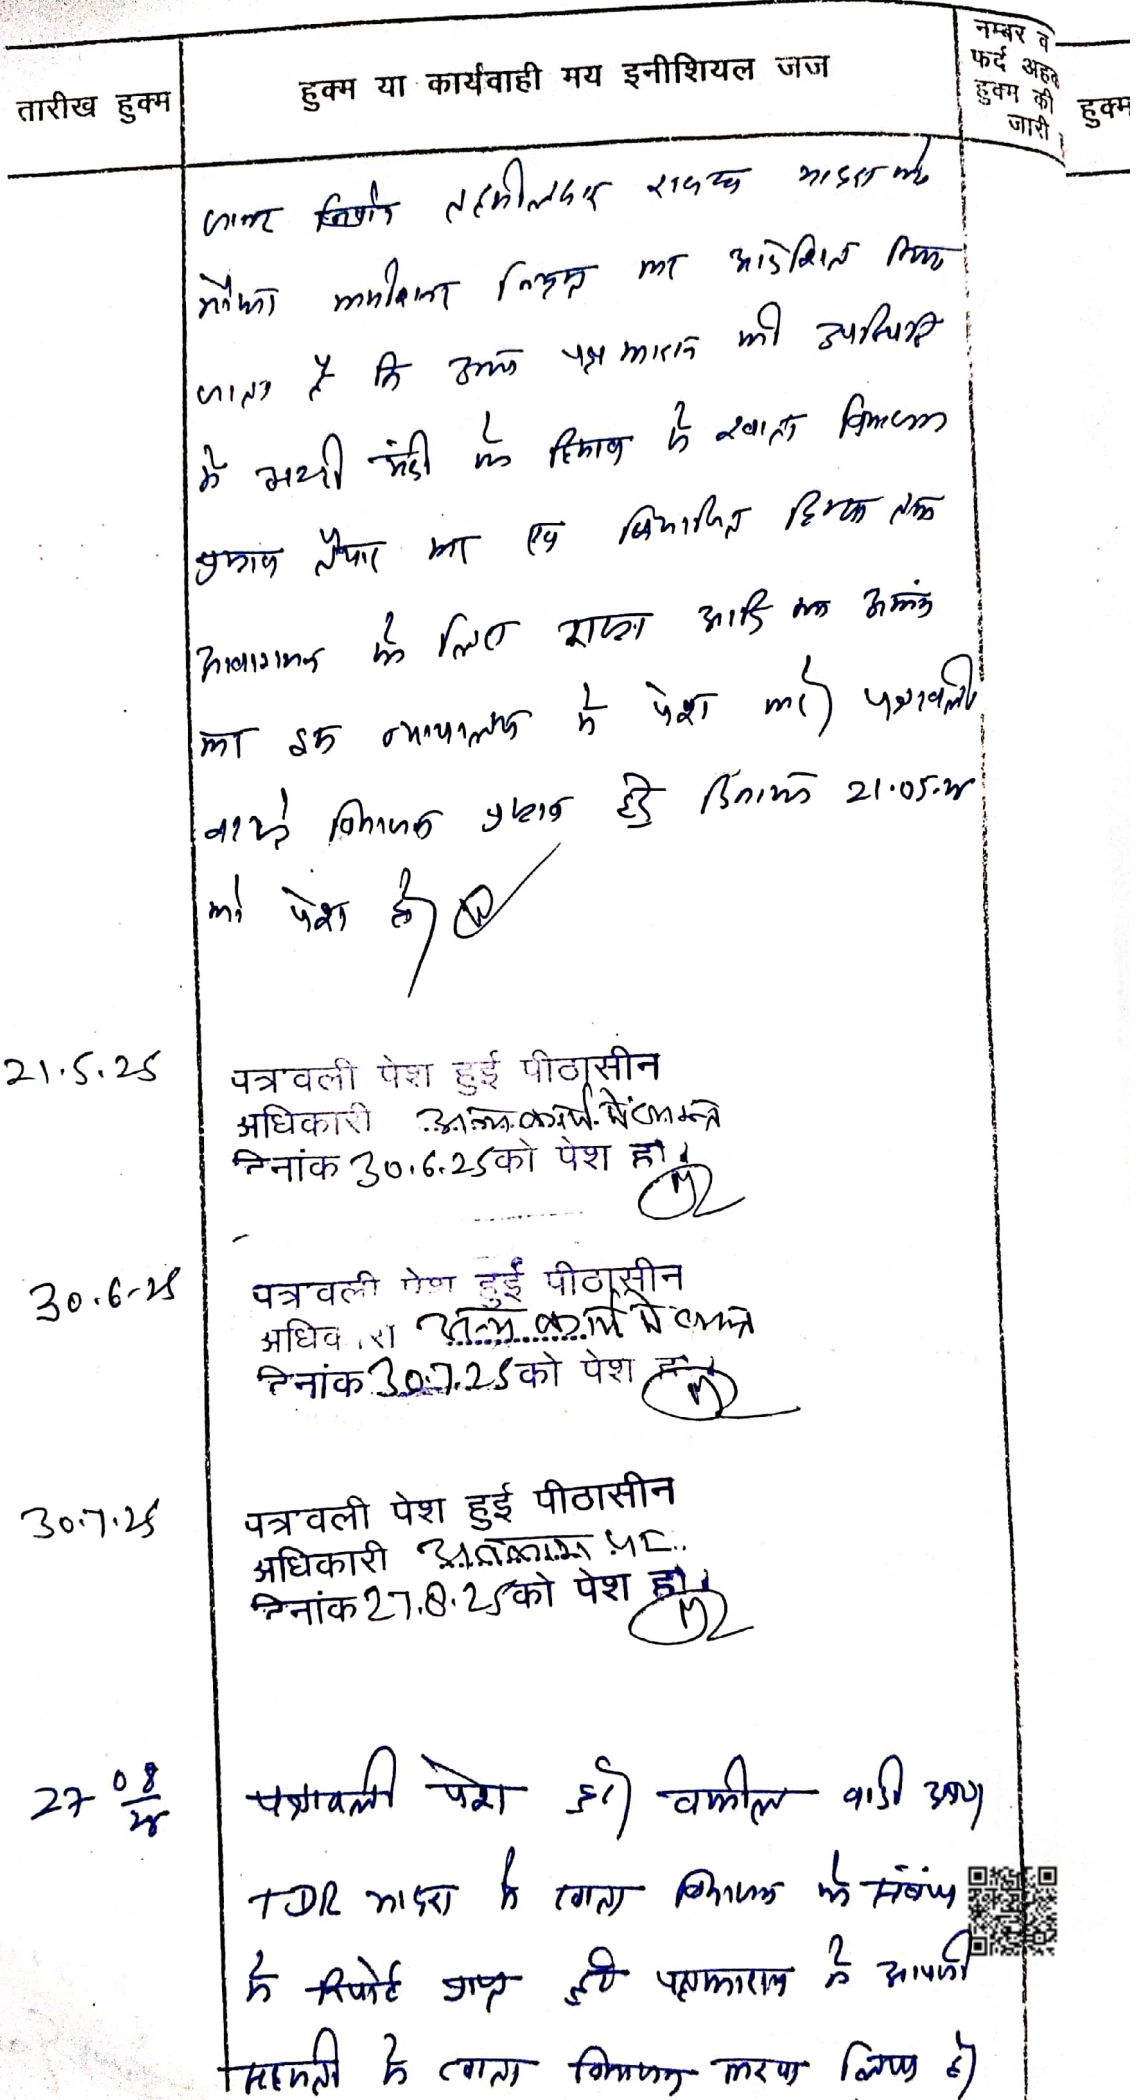 तारीख हुक्म
हुक्म या कार्यवाही मय इनीशियल जज
नम्बर व
फर्द अहव
हुक्म की
जारी
हुक्म
तहसीलदार राजस्व भादरा को
मौका कमीश्नर नियुक्त कर आदेशित किया
जाता है कि उभय पक्षकारान की उपस्थिति
में अच्छी मंदी के हिसाब से खाता विभाजन
प्रस्ताव तैयार कर एवं विभाजित हिस्से तक
आवागमन के लिए रास्ता आदि का अंकन
कर इस न्यायालय में पेश करे। पत्रावली
वास्ते विभाजन प्रस्ताव हेतु दिनांक 21.05.25
को पेश हो।
21.5.25
पत्रावली पेश हुई पीठासीन
अधिकारी अन्य कार्य में व्यस्त
दिनांक 30.6.25 को पेश हो।
30.6.25
पत्रावली पेश हुई पीठासीन
अधिकारी अन्य कार्य में व्यस्त
दिनांक 30.7.25 को पेश हो।
30.7.25
पत्रावली पेश हुई पीठासीन
अधिकारी अवकाश पर
दिनांक 27.8.25 को पेश हो।
27 08/25
पत्रावली पेश हुई। वकील वादी उप०
TDR भादरा से खाता विभाजन के संबंध
में रिपोर्ट प्राप्त हुई पक्षकारान ने आपसी
सहमती से खाता विभाजन करवा लिया है।